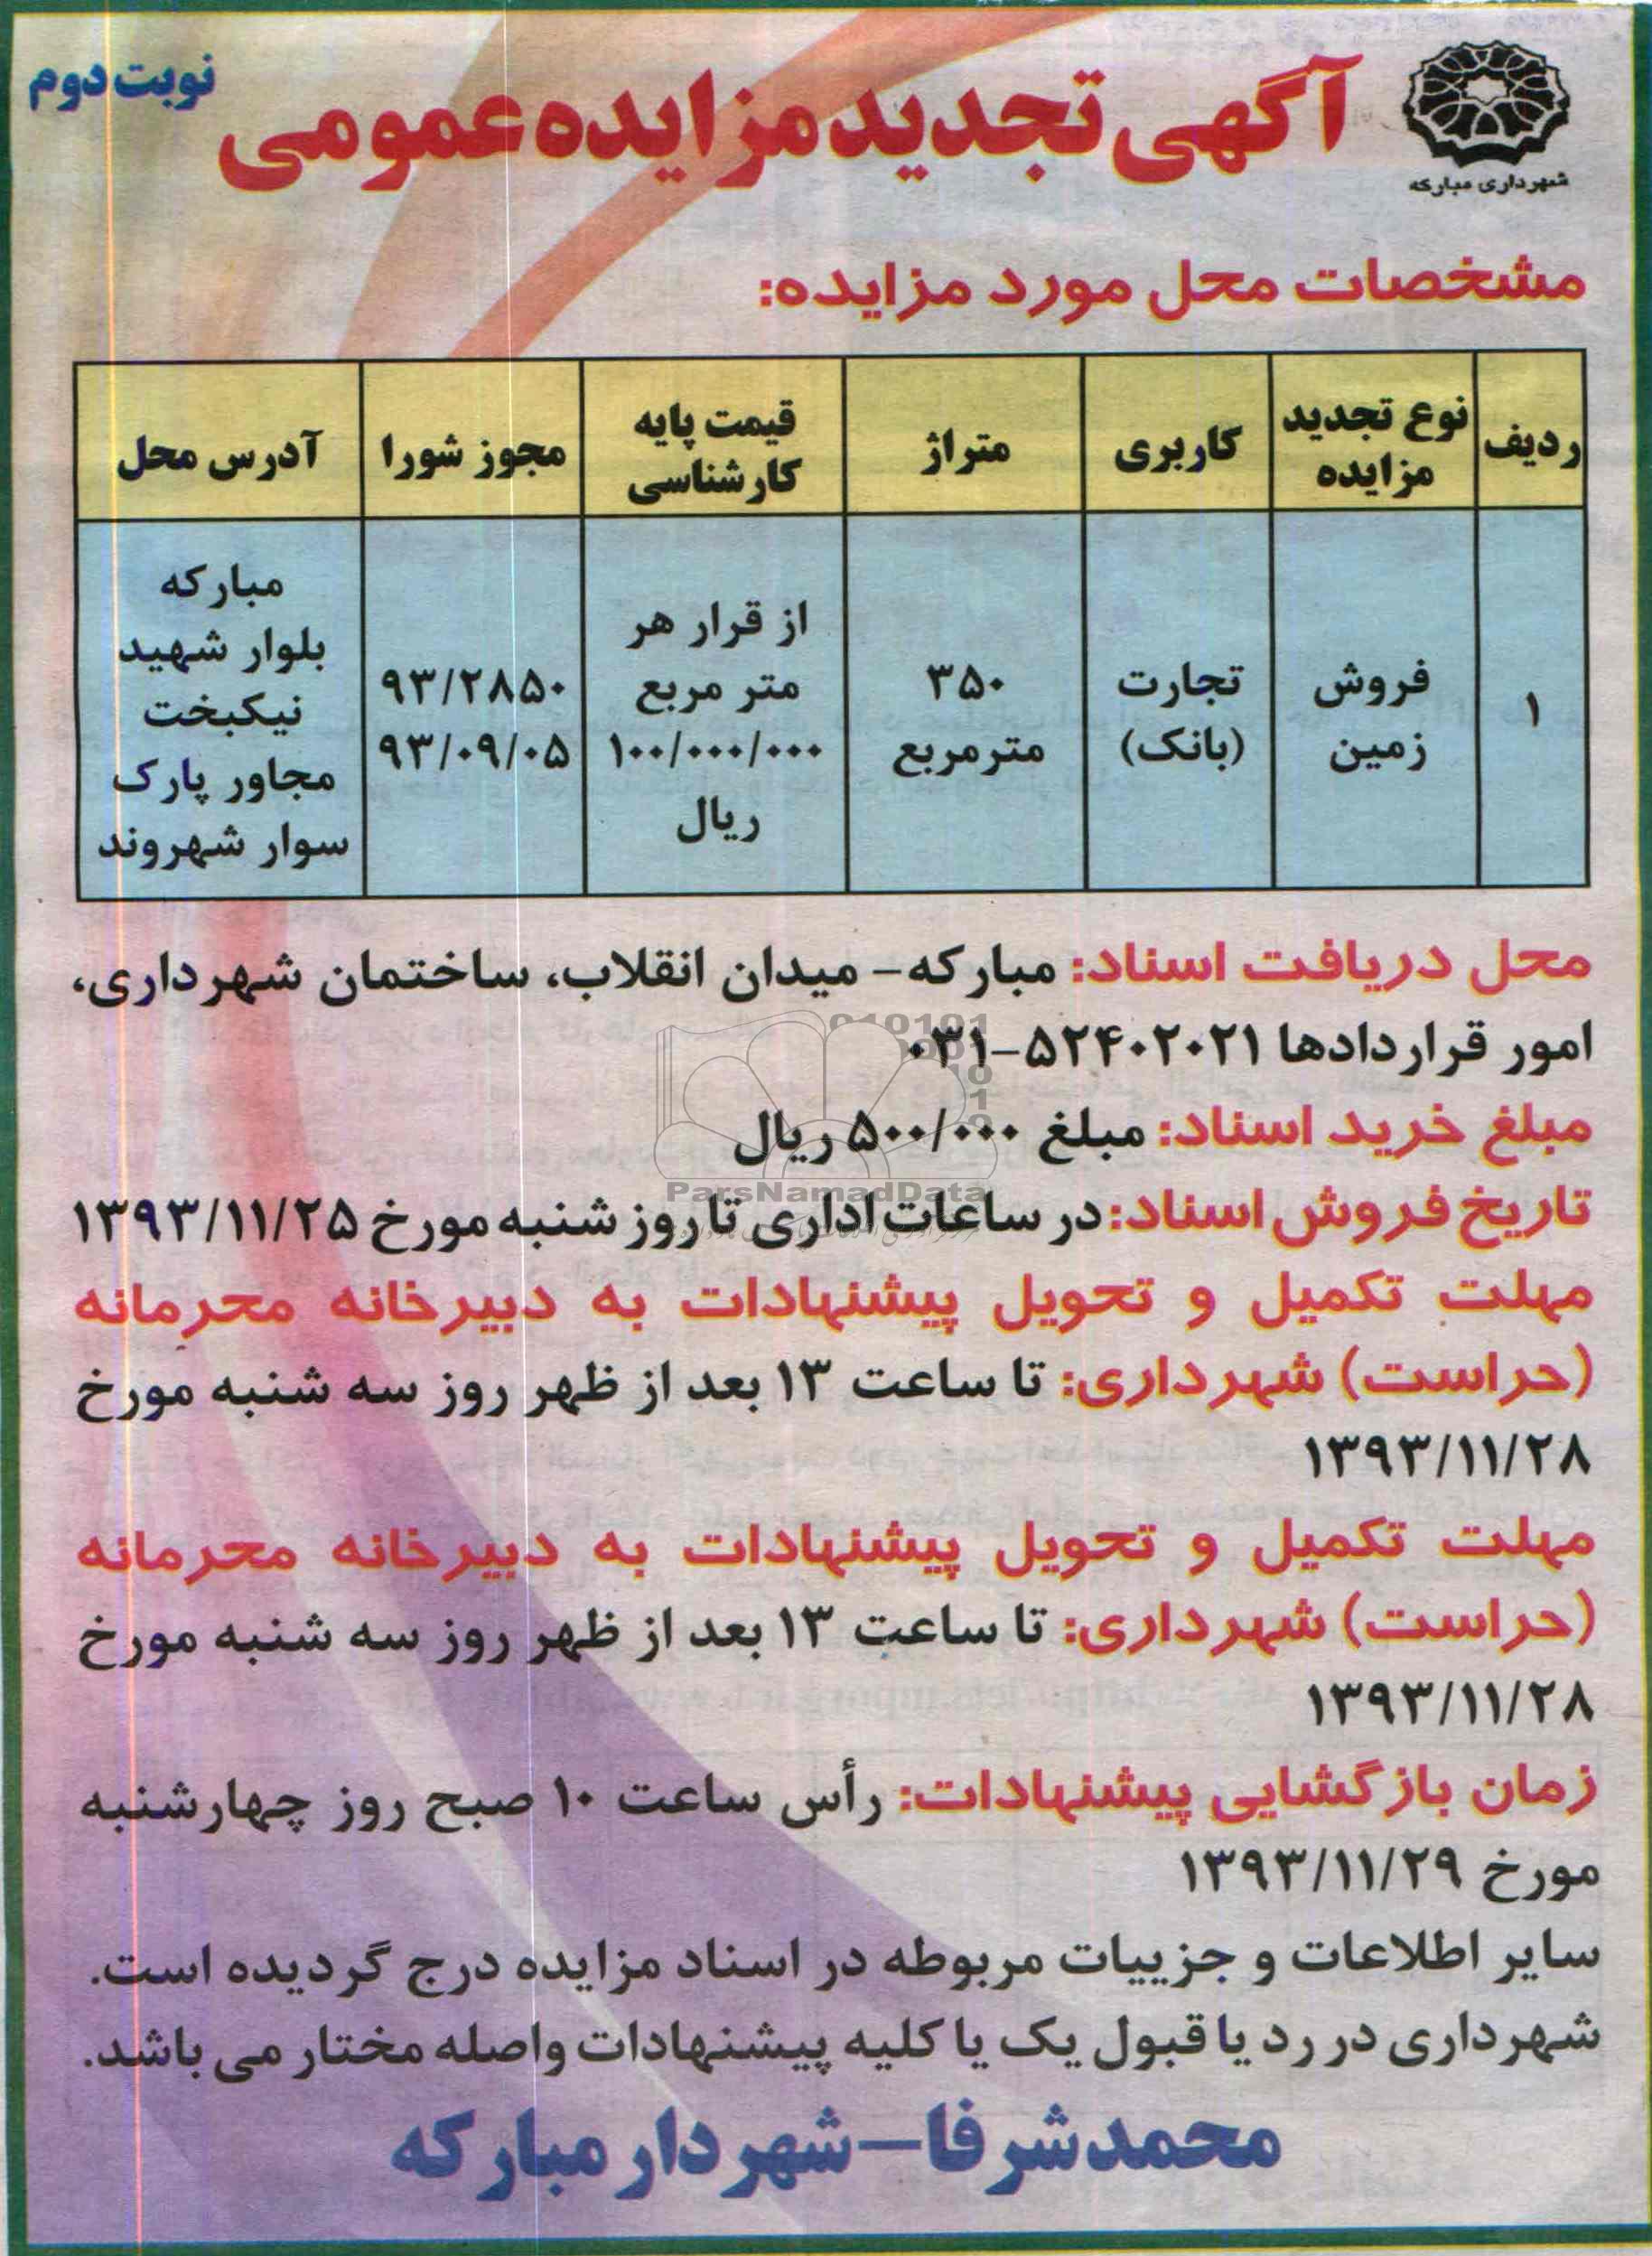 شهرداری مبارکه
آگهی تجدید مزایده عمومی
نوبت دوم
مشخصات محل مورد مزایده:
ردیف
نوع تجدید
مزایده
کاربری
متراژ
قیمت پایه
کارشناسی
مجوز شورا
آدرس محل
۱
فروش
زمین
تجارت
(بانک)
۳۵۰
مترمربع
از قرار هر
متر مربع
۱۰۰/۰۰۰/۰۰۰
ریال
۹۳/۲۸۵۰
۹۳/۰۹/۰۵
مبارکه
بلوار شهید
نیکبخت
مجاور پارک
سوار شهروند
محل دریافت اسناد: مبارکه- میدان انقلاب، ساختمان شهرداری،
امور قراردادها ۵۲۴۰۲۰۲۱-۰۳۱
مبلغ خرید اسناد: مبلغ ۵۰۰/۰۰۰ ریال
تاریخ فروش اسناد: در ساعات اداری تا روز شنبه مورخ ۱۳۹۳/۱۱/۲۵
مهلت تکمیل و تحویل پیشنهادات به دبیرخانه محرمانه
(حراست) شهرداری: تا ساعت ۱۳ بعد از ظهر روز سه شنبه مورخ
۱۳۹۳/۱۱/۲۸
مهلت تکمیل و تحویل پیشنهادات به دبیرخانه محرمانه
(حراست) شهرداری: تا ساعت ۱۳ بعد از ظهر روز سه شنبه مورخ
۱۳۹۳/۱۱/۲۸
زمان بازگشایی پیشنهادات: رأس ساعت ۱۰ صبح روز چهارشنبه
مورخ ۱۳۹۳/۱۱/۲۹
سایر اطلاعات و جزییات مربوطه در اسناد مزایده درج گردیده است.
شهرداری در رد یا قبول یک یا کلیه پیشنهادات واصله مختار می باشد.
محمد شرفا-شهردار مبارکه
ParsNamadData